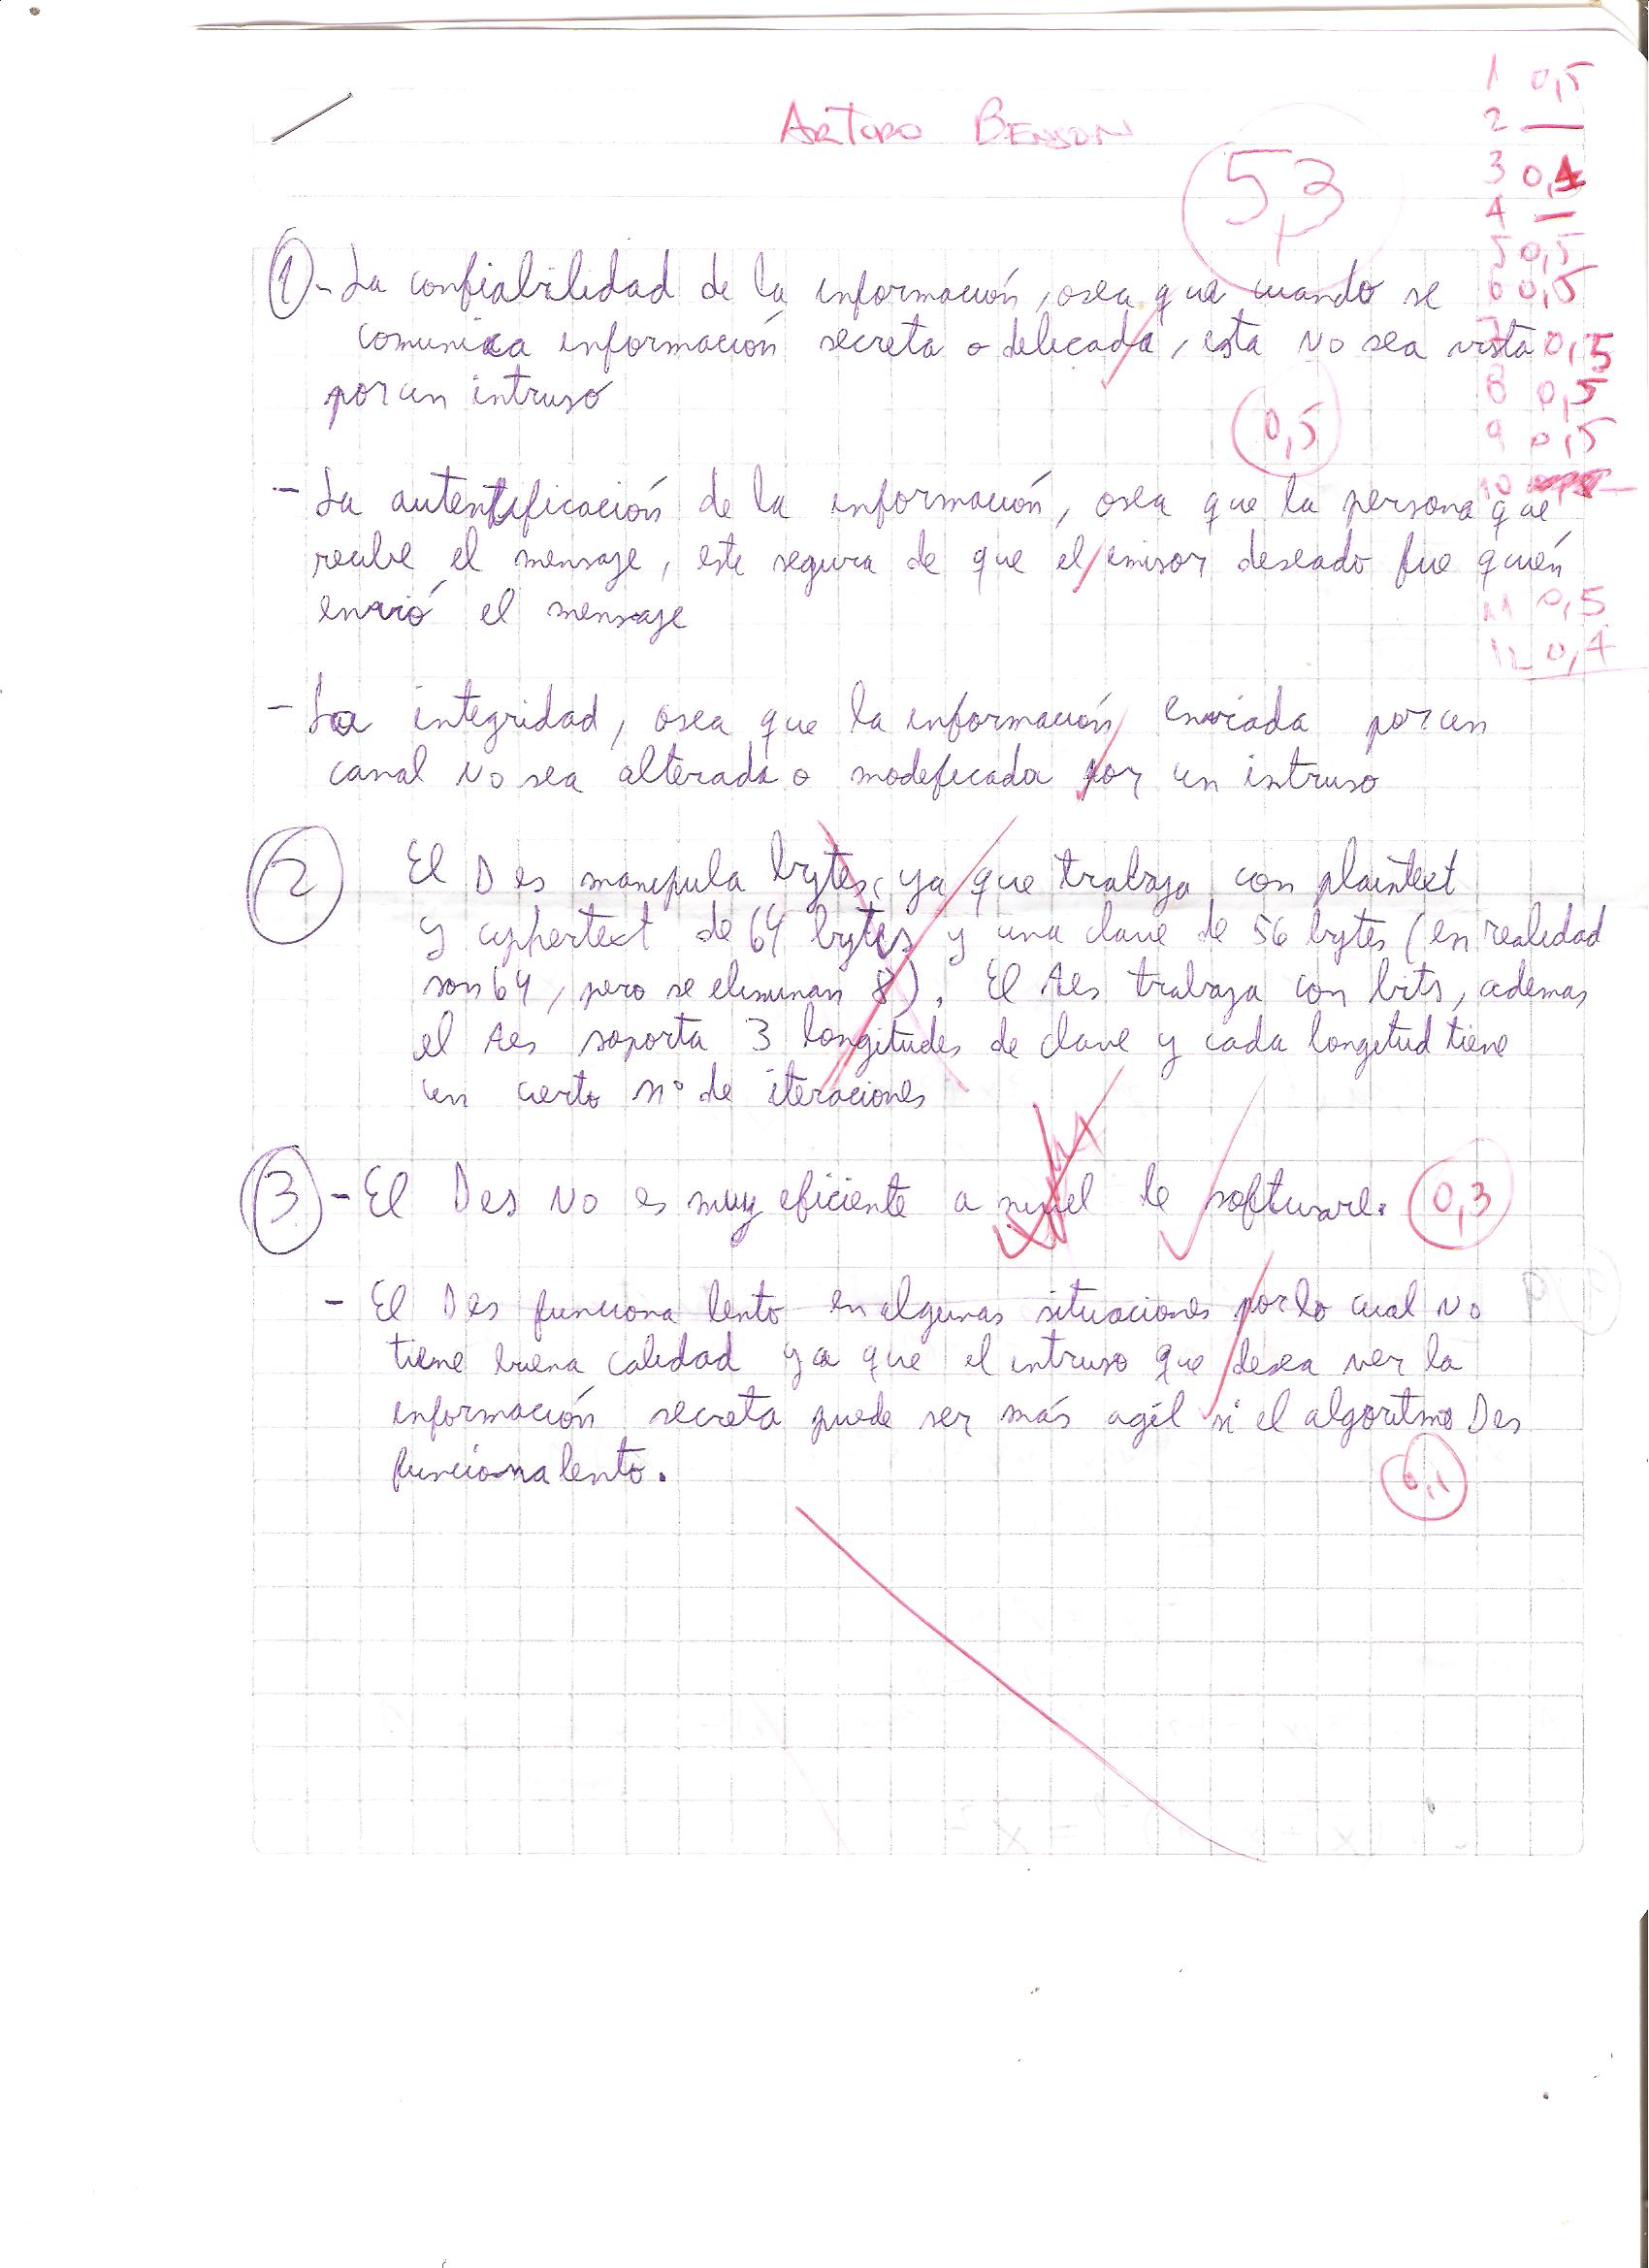 ARTURO BENSON
5,3
1 0,5
2 —
3 0,4
4 —
5 0,5
6 0,5
7 0,5
8 0,5
9 0,5
10 —
11 0,5
12 0,4
① - La confiabilidad de la información, osea que cuando se
comunica información secreta o delicada, esta no sea vista
por un intruso
0,5
- La autentificación de la información, osea que la persona que
recibe el mensaje, este segura de que el emisor deseado fue quién
envió el mensaje
- La integridad, osea que la información enviada por un
canal no sea alterada o modificada por un intruso
② El Des manipula bytes, ya que trabaja con plaintext
y cyphertext de 64 bytes y una clave de 56 bytes (en realidad
son 64, pero se eliminan 8). El Aes trabaja con bits, ademas
el Aes soporta 3 longitudes de clave y cada longitud tiene
un cierto n° de iteraciones
③ - El Des no es muy eficiente a nivel de software. 0,3
- El Des funciona lento en algunas situaciones por lo cual no
tiene buena calidad ya que el intruso que desea ver la
información secreta puede ser más agíl si el algoritmo Des
funciona lento.
0,1